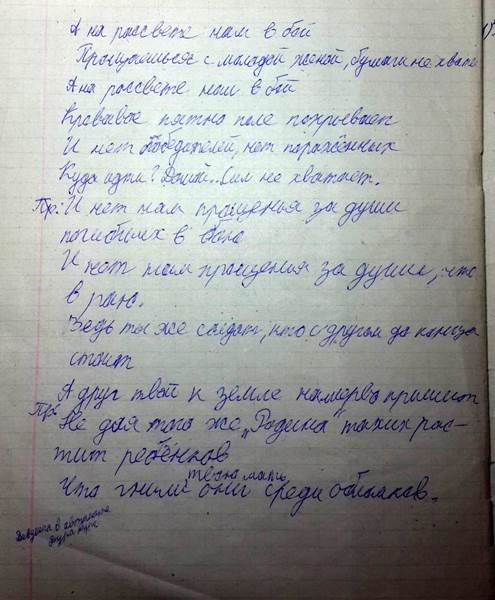 А на рассвете нам в бой
Прощаешься с молодой женой, бумаги не хвата
А на рассвете нам в бой
Кровавое пятно поле покрывает
И нет победителей, нет поражённых
Куда идти? Домой... Сил не хватает.
Пр: И нет нам прощенья за души
погибших в бою
И нет нам прощения за души, что
в раю.
Ведь ты же солдат, кто с другом до конца
стоит
А друг твой к земле намертво пришит
Пр: Не для того же "Родина" таких рос-
тит ребёнков
твою мать
Что гнили они среди обломков.
в